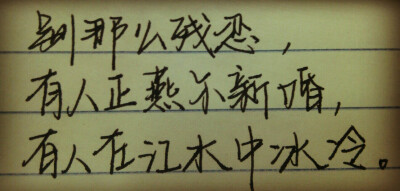 别那么残忍，
有人正燕尔新婚，
有人在江水中冰冷。